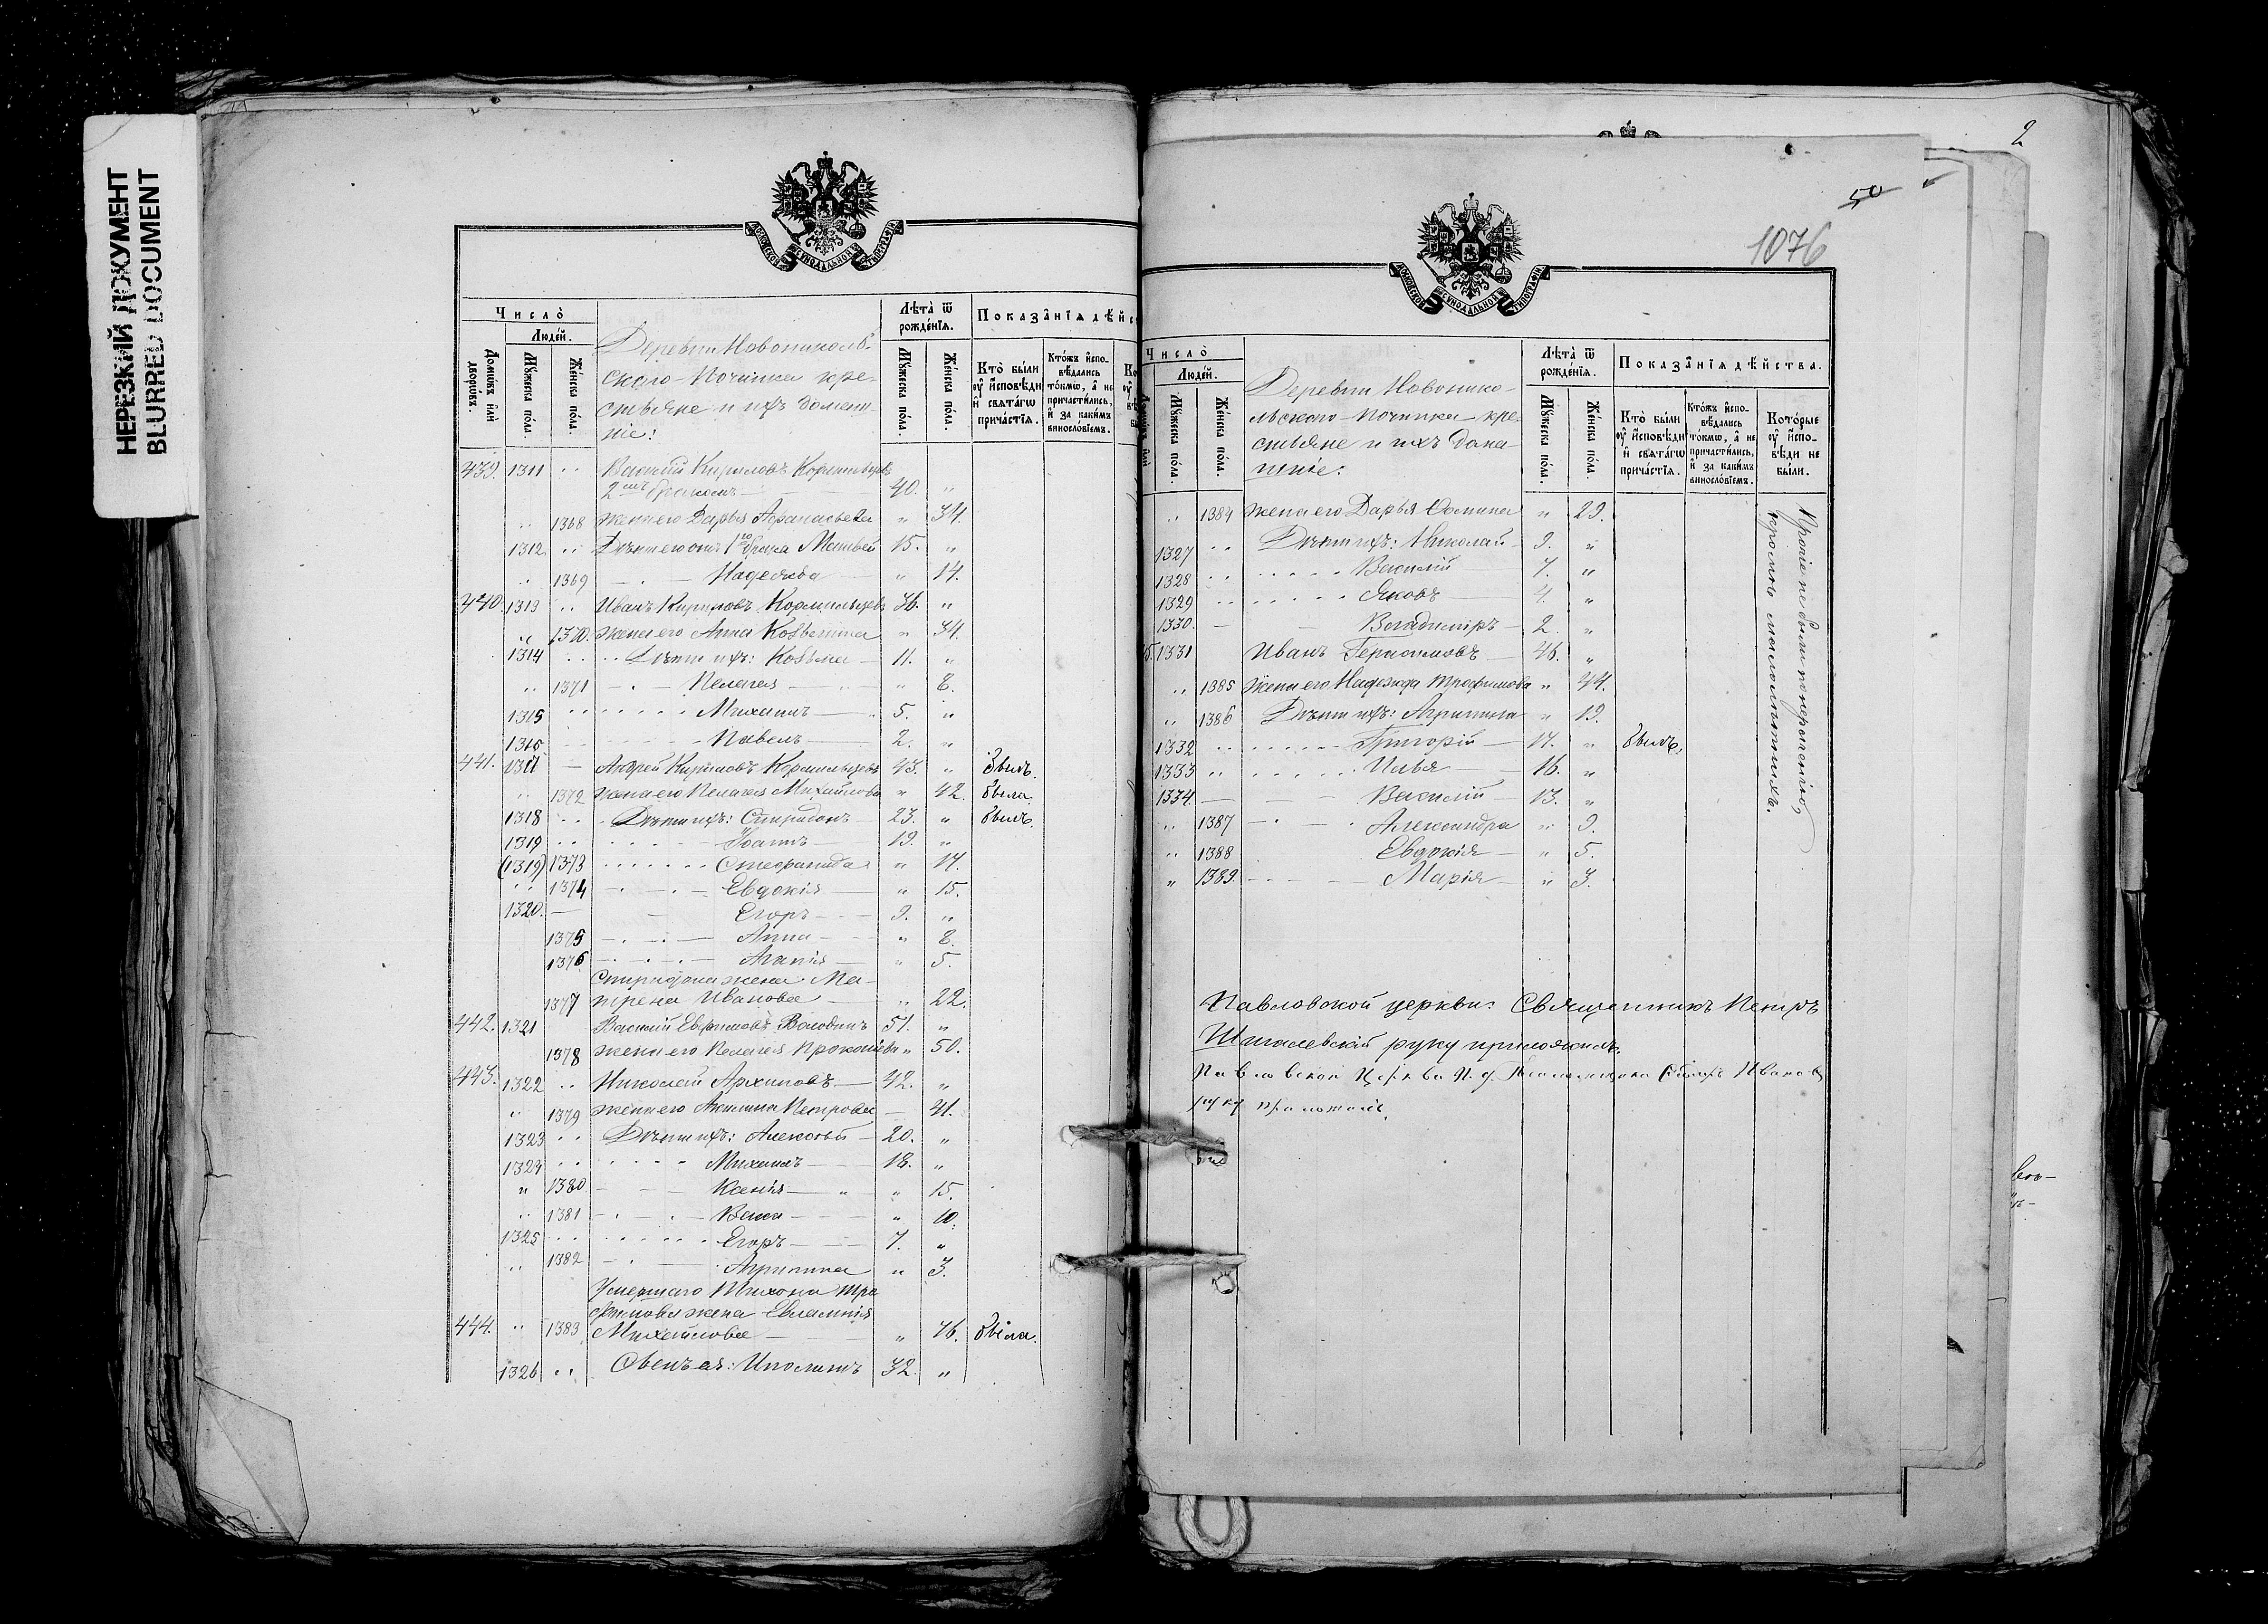 НЕРЕЗКИЙ ДОКУМЕНТ
BLURRED DOCUMENT
МОСКОВСКОЙ СѴНОДАЛЬНОЙ ТИПОГРАФІИ
Число̀
Люде́й.
Домѡ́въ и҆лѝ дворѡ́въ.
Мꙋ́жеска по́ла.
Же́нска по́ла.
Деревни Новониколь-
скаго-Починка кре-
стьяне и ихъ домаш-
ніе:
Лѣта̀ ѿ рожде́нїѧ.
Мꙋ́жеска по́ла.
Же́нска по́ла.
Показа̑нїѧ дѣ́йс
Кто̀ бы́ли оу҆ и҆сповѣди и҆ свѧта́гѡ прича́стїѧ.
Кто́жъ и҆спо-вѣдались то́кмѡ, а҆ не причасти́лись, и҆ за каки́мъ винослові́емъ.
439. 1311 " Василій Кириловъ Кормильцевъ
2мъ бракомъ — 40. "
" 1368 жена его Дарья Афанасьева " 34.
1312 " Дѣти его отъ 1го брака Матвей 15. "
" 1369 — Надежда " 14.
440. 1313 " Иванъ Кириловъ Кормильцевъ 36. "
" 1370. жена его Анна Козьмина " 34.
1314 " Дѣти ихъ: Козьма — 11. "
" 1371 — Пелагея — " 8.
1315 " Михаилъ — 5. "
1316 Павелъ — 2. "
441. 1317 — Андрей Кириловъ Кормильцевъ 43. " былъ.
" 1372 жена его Пелагея Михайлова " 42. была.
1318 " Дѣти ихъ: Спиридонъ 23. " былъ.
1319 " Іоаннъ — 19. "
(1319) 1373 Стефанида " 17.
" 1374 — Евдокія — " 15.
1320. — Егоръ — 9. "
1375 — Анна — " 8.
1376 — Агапія — " 5.
Спиридона жена Ма-
1377 трена Иванова — " 22.
442. 1321 Василій Евфимовъ Володинъ 51. "
1378 жена его Пелагея Прокопіева " 50.
443. 1322 " Николай Архиповъ — 42. "
" 1379 жена его Акилина Петрова — 41.
1323 " Дѣти ихъ: Алексѣй — 20. "
1324 " Михаилъ — 18. "
" 1380 — Ксенія — " 15.
" 1381 — Васса — " 10.
1325 " Егоръ — 7. "
" 1382 — Агрипина " 3.
Умершаго Тихона Тро
фимова жена Евлампія
444. " 1383 Михайлова — " 76. была.
1326 " Сынъ ея: Иполитъ 32. "
2
50
1076
МОСКОВСКОЙ СѴНОДАЛЬНОЙ ТИПОГРАФІИ
Число̀
Люде́й.
Мꙋ́жеска по́ла.
Же́нска по́ла.
Деревни Новонико-
льскаго-Починка кре-
стьяне и ихъ дома-
шніе:
Лѣта̀ ѿ рожде́нїѧ.
Мꙋ́жеска по́ла.
Же́нска по́ла.
Показа̑нїѧ дѣ́йства.
Кто̀ бы́ли оу҆ и҆сповѣди и҆ свѧта́гѡ прича́стїѧ.
Кто́жъ и҆спо-вѣдались то́кмѡ, а҆ не причасти́лись, и҆ за каки́мъ винослові́емъ.
Кото́рые оу҆ и҆спо-вѣди не бы́ли.
" 1384 жена его Дарья Фомина " 29.
1327 " Дѣти ихъ: Николай — 9. "
1328 " Василій — 7. "
1329 " Яковъ — 4. "
1330. — Владиміръ — 2. "
1331 Иванъ Герасимовъ — 46. "
" 1385 жена его Надежда Трофимова " 44.
" 1386 Дѣти ихъ: Агрипина " 19.
1332 " Григорій — 17. " былъ.
1333 " Илья — 16. "
1334. — Василій — 13. "
" 1387 — Александра " 9.
" 1388 Евдокія — " 5.
" 1389. — Марія — " 3.
Прочіе не были по нераденію,
кромѣ малолѣтнихъ.
Павловской церкви: Священникъ Петръ
Шишалевскій руку приложилъ.
Павловской Церкви И. д. Псаломщика Иванов
руку приложилъ.